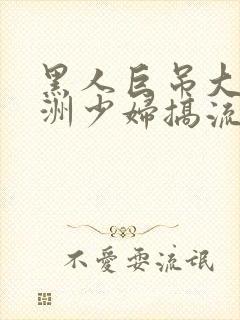 黑人巨吊大
洲少婦搞流
不愛耍流氓